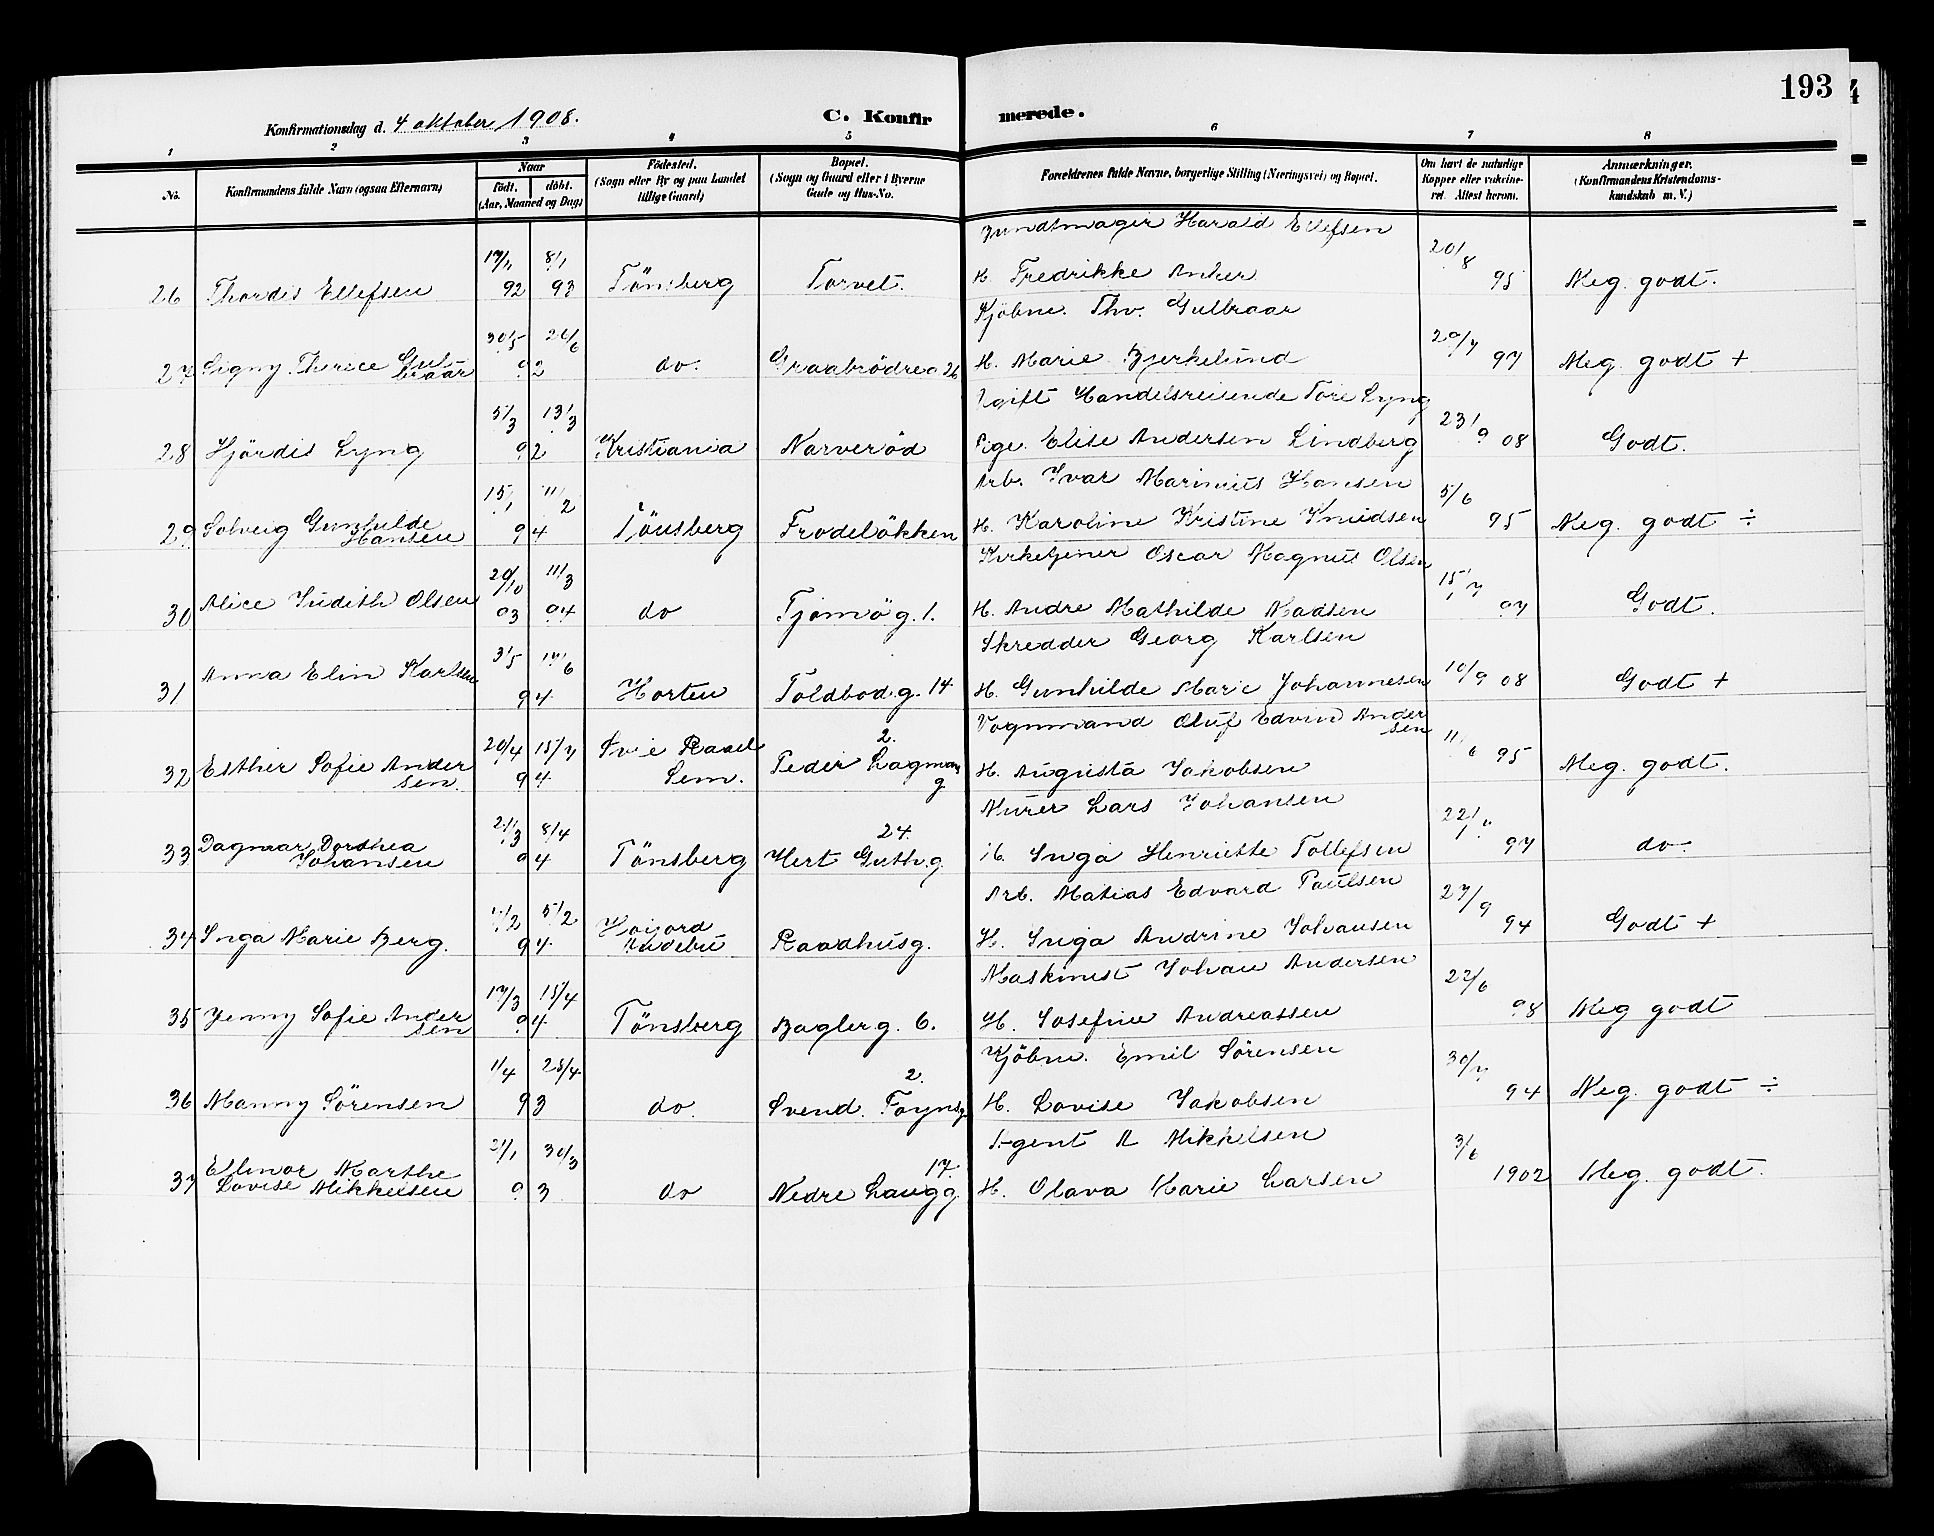 193
Konfirmationsdag d. 4 oktober 1908.
C. Konfirmerede.
1 2 3 4 5 6 7 8
No. Konfirmandens fulde Navn (ogsaa Efternavn) Naar Födt. döbt. (Aar, Maaned og Dag) Födested. (Sogn eller By og paa Landet tillige Gaard) Bopæl. (Sogn og Gaard eller i Byerne Gade og Hus-No. Forældrenes fulde Navne, borgerlige Stilling (Næringsvei) og Bopæl. Om havt de naturlige Kopper eller vaksineret. Attest herom. Anmærkninger. (Konfirmandens Kristendomskundskab m. V.)
Bundtmager Harald Ellefsen
26 Thordis Ellefsen 92 8/1 93 Tönsberg Torvet. H Fredrikke Anker 20/8 95 Meg. godt.
Kjöbm. Thv. Gulbraar
27 Signy Therice Gulbraar 30/5 26/6 92 do. Graabrödreg 26 H. Marie Bjerkelund 20/7 97 Meg. godt +
Ugift Handelsreisende Tore Lyng
28 Hjördis Lyng 5/3 13/3 92 Kristiania Narveröd Pige. Elise Andersen Lindberg 23/9 08 Godt.
Arb. Ivar Marinius Hansen
29 Solveig Gunhilde Hansen 15/1 11/2 94 Tönsberg Frodelökken H. Karoline Kristine Knudsen 5/6 95 Meg. godt ÷
Kirketjener Oscar Magnus Olsen
30 Alice Judith Olsen 20/10 93 11/3 94 do Tjømö g. 1. H. Andre Mathilde Madsen 15/7 97 Godt.
Skredder Georg Karlsen
31 Anna Elin Karlsen 3/5 17/6 94 Horten Toldbod.g. 14 H. Gunhilde Marie Johannesen 10/9 08 Godt +
Vognmand Oluf Edvin Andersen
32 Esther Sofie Andersen. 20/4 15/7 94 Sem. Peder Lagmans g 2. H. Augusta Jakobsen 11/6 95 Meg. godt.
Murer Lars Johansen
33 Dagmar Dorthea Johansen 21/3 8/4 94 Tönsberg Hert Guth.g. 24. H. Inga Henriette Tollefsen 97 do.
Arb. Matias Edvard Paulsen
34 Inga Marie Berg. 5/2 94 Höijord Raadhusg. H. Inga Andrine Johansen 27/9 94 Godt +
Maskinist Johan Andersen
35 Jenny Sofie Andersen 17/3 15/4 94 Tönsberg Baglerg. 6. H. Josefine Andreassen 22/6 98 Meg godt
Kjöbm. Emil Sörensen
36 Manny Sörensen 1/4 25/4 93 do. Svend. Foynsg 2. H. Lovise Jakobsen 30/7 94 Meg. godt ÷
Agent A Mikkelsen
37 Ellinor Marthe Lovise Mikkelsen 21/1 30/3 93 do Nedre Langg. 17. H. Olava Marie Larsen 3/6 1902 Meg. godt.